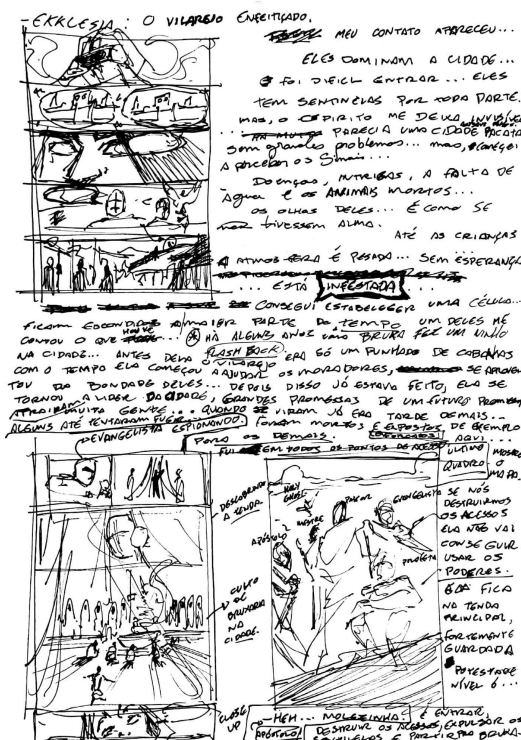 - EKKLESIA: O VILAREJO ENFEITIÇADO.
MEU CONTATO APARECEU...
ELES DOMINAM A CIDADE...
FOI DIFICIL ENTRAR... ELES
TEM SENTINELAS POR TODA PARTE.
MAS, O ESPIRITO ME DEIXA INVISÍVEL
PARECIA UMA CIDADE PACATA
sem grandes problemas... mas, comecei
A perceber os Sinais...
DOENÇAS, INTRIGAS, A FALTA DE
ÁGUA E OS ANIMAIS MORTOS...
OS OLHOS DELES... É COMO SE
NÃO TIVESSEM ALMA.
ATÉ AS CRIANÇAS
A ATMOSFERA É PESADA... SEM ESPERANÇA
... ESTÁ INFESTADA ...
CONSEGUI ESTABELECER UMA CÉLULA...
FICAM ESCONDIDOS A MAIOR PARTE DO TEMPO UM DELES ME
CONTOU O QUE HOUVE... HÁ ALGUNS ANOS UMA BRUXA FEZ UM NINHO
NA CIDADE... ANTES DELA O VILAREJO ERA SÓ UM PUNHADO DE CABANAS
FLASH BACK
COM O TEMPO ELA COMEÇOU A AJUDAR OS MORADORES, SE APROVEI
TOU DA BONDADE DELES... DEPOIS DISSO JÁ ESTAVA FEITO, ELA SE
TORNOU A LIDER DA CIDADE, GRANDES PROMESSAS DE UM FUTURO
ATRAIRAM MUITA GENTE... QUANDO VIRAM JÁ ERA TARDE DEMAIS...
ALGUNS ATÉ TENTARAM FUGIR... FORAM MORTOS E EXPOSTOS DE EXEMPLO
PARA OS DEMAIS.
EVANGELISTA ESPIONANDO.
EM TODOS OS PONTOS DE ACESSO
AQUI...
ULTIMO QUADRO MOSTRA O MAPA.
DESCOBRINDO
A TENDA.
CULTO
DE
BRUXARIA
NA
CIDADE.
HOLY
GHOST
APÓSTOLO
MESTRE
PASTOR
EVANGELISTA
PROFETA
SE NÓS
DESTRUIRMOS
OS ACESSOS
ELA NÃO VAI
CONSEGUIR
USAR OS
PODERES.
ELA FICA
NA TENDA
PRINCIPAL,
FORTEMENTE
GUARDADA
POTESTADE
NÍVEL 6...
CLOSE
UP
APÓSTOLO
- HEH... MOLEZINHA! É ENTRAR,
DESTRUIR OS ACESSOS, EXPULSAR OS
E PARTIR PRA BRUXA.